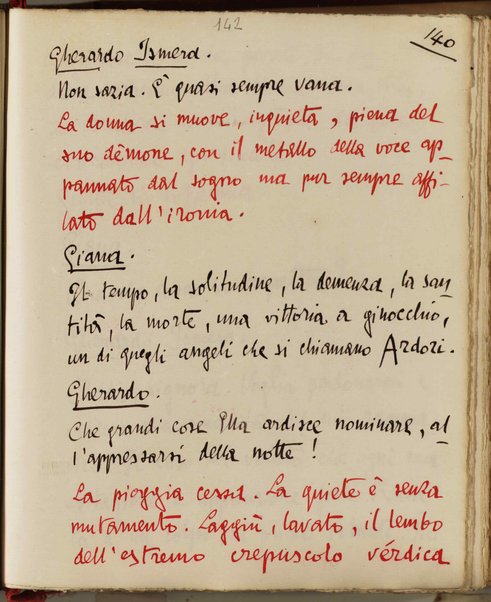 142
140
Gherardo Ismera.
Non sazia. È quasi sempre vana.
La donna si muove, inquieta, piena del
suo dèmone, con il metallo della voce ap-
pannato dal sogno ma pur sempre affi-
lato dall'ironia.
Giana.
Il tempo, la solitudine, la demenza, la san-
tità, la morte, una vittoria a ginocchio,
un di quegli angeli che si chiamano Ardori.
Gherardo.
Che grandi cose Ella ardisce nominare, al
l'appressarsi della notte!
La pioggia cessa. La quiete è senza
mutamento. Laggiù, lavato, il lembo
dell'estremo crepuscolo vérdica